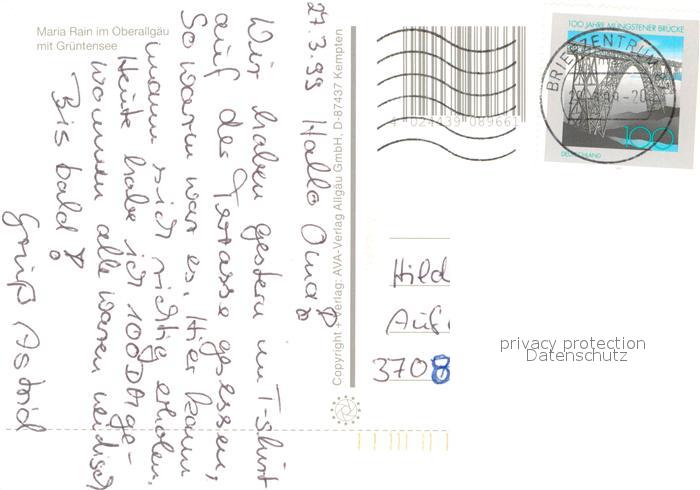 Maria Rain im Oberallgäu
mit Grüntensee
27.3.99 Hallo Oma!
Wir haben gestern im T-shirt
auf der Terrasse gesessen,
so warm war es. Hier kann
mann sich richtig erholen.
Heute habe ich 100DM ge-
wonnen alle waren neidisch
Bis bald!
Gruß Astrid
Copyright + Verlag: AVA-Verlag Allgäu GmbH, D-87437 Kempten
4 024439 089661
100 JAHRE MÜNGSTENER BRÜCKE
BRIEFZENTRUM
100
DEUTSCHLAND
Hild
Auf
3708
privacy protection
Datenschutz